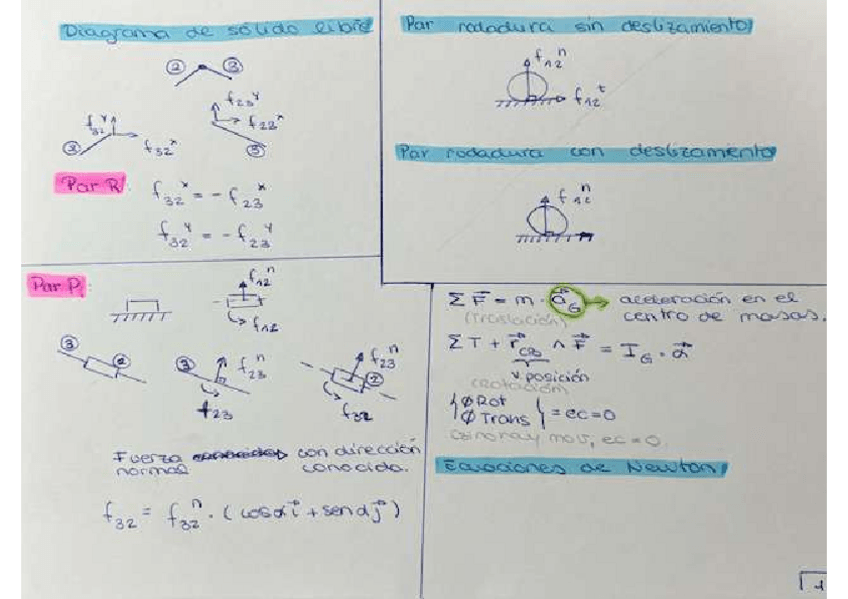 Diagrama de sólido libre
② ③
f₃₂ʸ
f₃₂ˣ
f₂₃ʸ
f₂₃ˣ
③
Par R:
f₃₂ˣ = - f₂₃ˣ
f₃₂ʸ = - f₂₃ʸ
Par rodadura sin deslizamiento
f₁₂ⁿ
f₁₂ᵗ
Par rodadura con deslizamiento
f₁₂ⁿ
Par P:
f₁₂ⁿ
f₁₂
③ ②
③ f₂₃ⁿ
f₂₃
f₂₃ⁿ
②
f₃₂
Fuerza con dirección
normal conocida.
f₃₂ = f₃₂ⁿ · (cosα i⃗ + senα j⃗)
Σ F⃗ = m · a⃗_G → aceleración en el
(traslación) centro de masas.
Σ T + r⃗ ∧ F⃗ = I_G · α⃗
v. posición
(rotación)
{ ∅ Rot
∅ Trans } = ec = 0
mov, ec = 0.
Ecuaciones de Newton
1